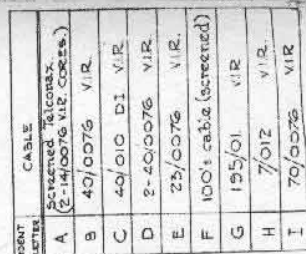 IDENT LETTER CABLE
A Screened Telconax. (2-14/0076 V.I.R. CORES.)
B 40/0076 V.I.R.
C 40/010 DI V.I.R.
D 2-40/0076 V.I.R.
E 23/0076 V.I.R.
F 100's cable (screened)
G 195/01. V.I.R
H 7/012 V.I.R.
I 70/0076 V.I.R